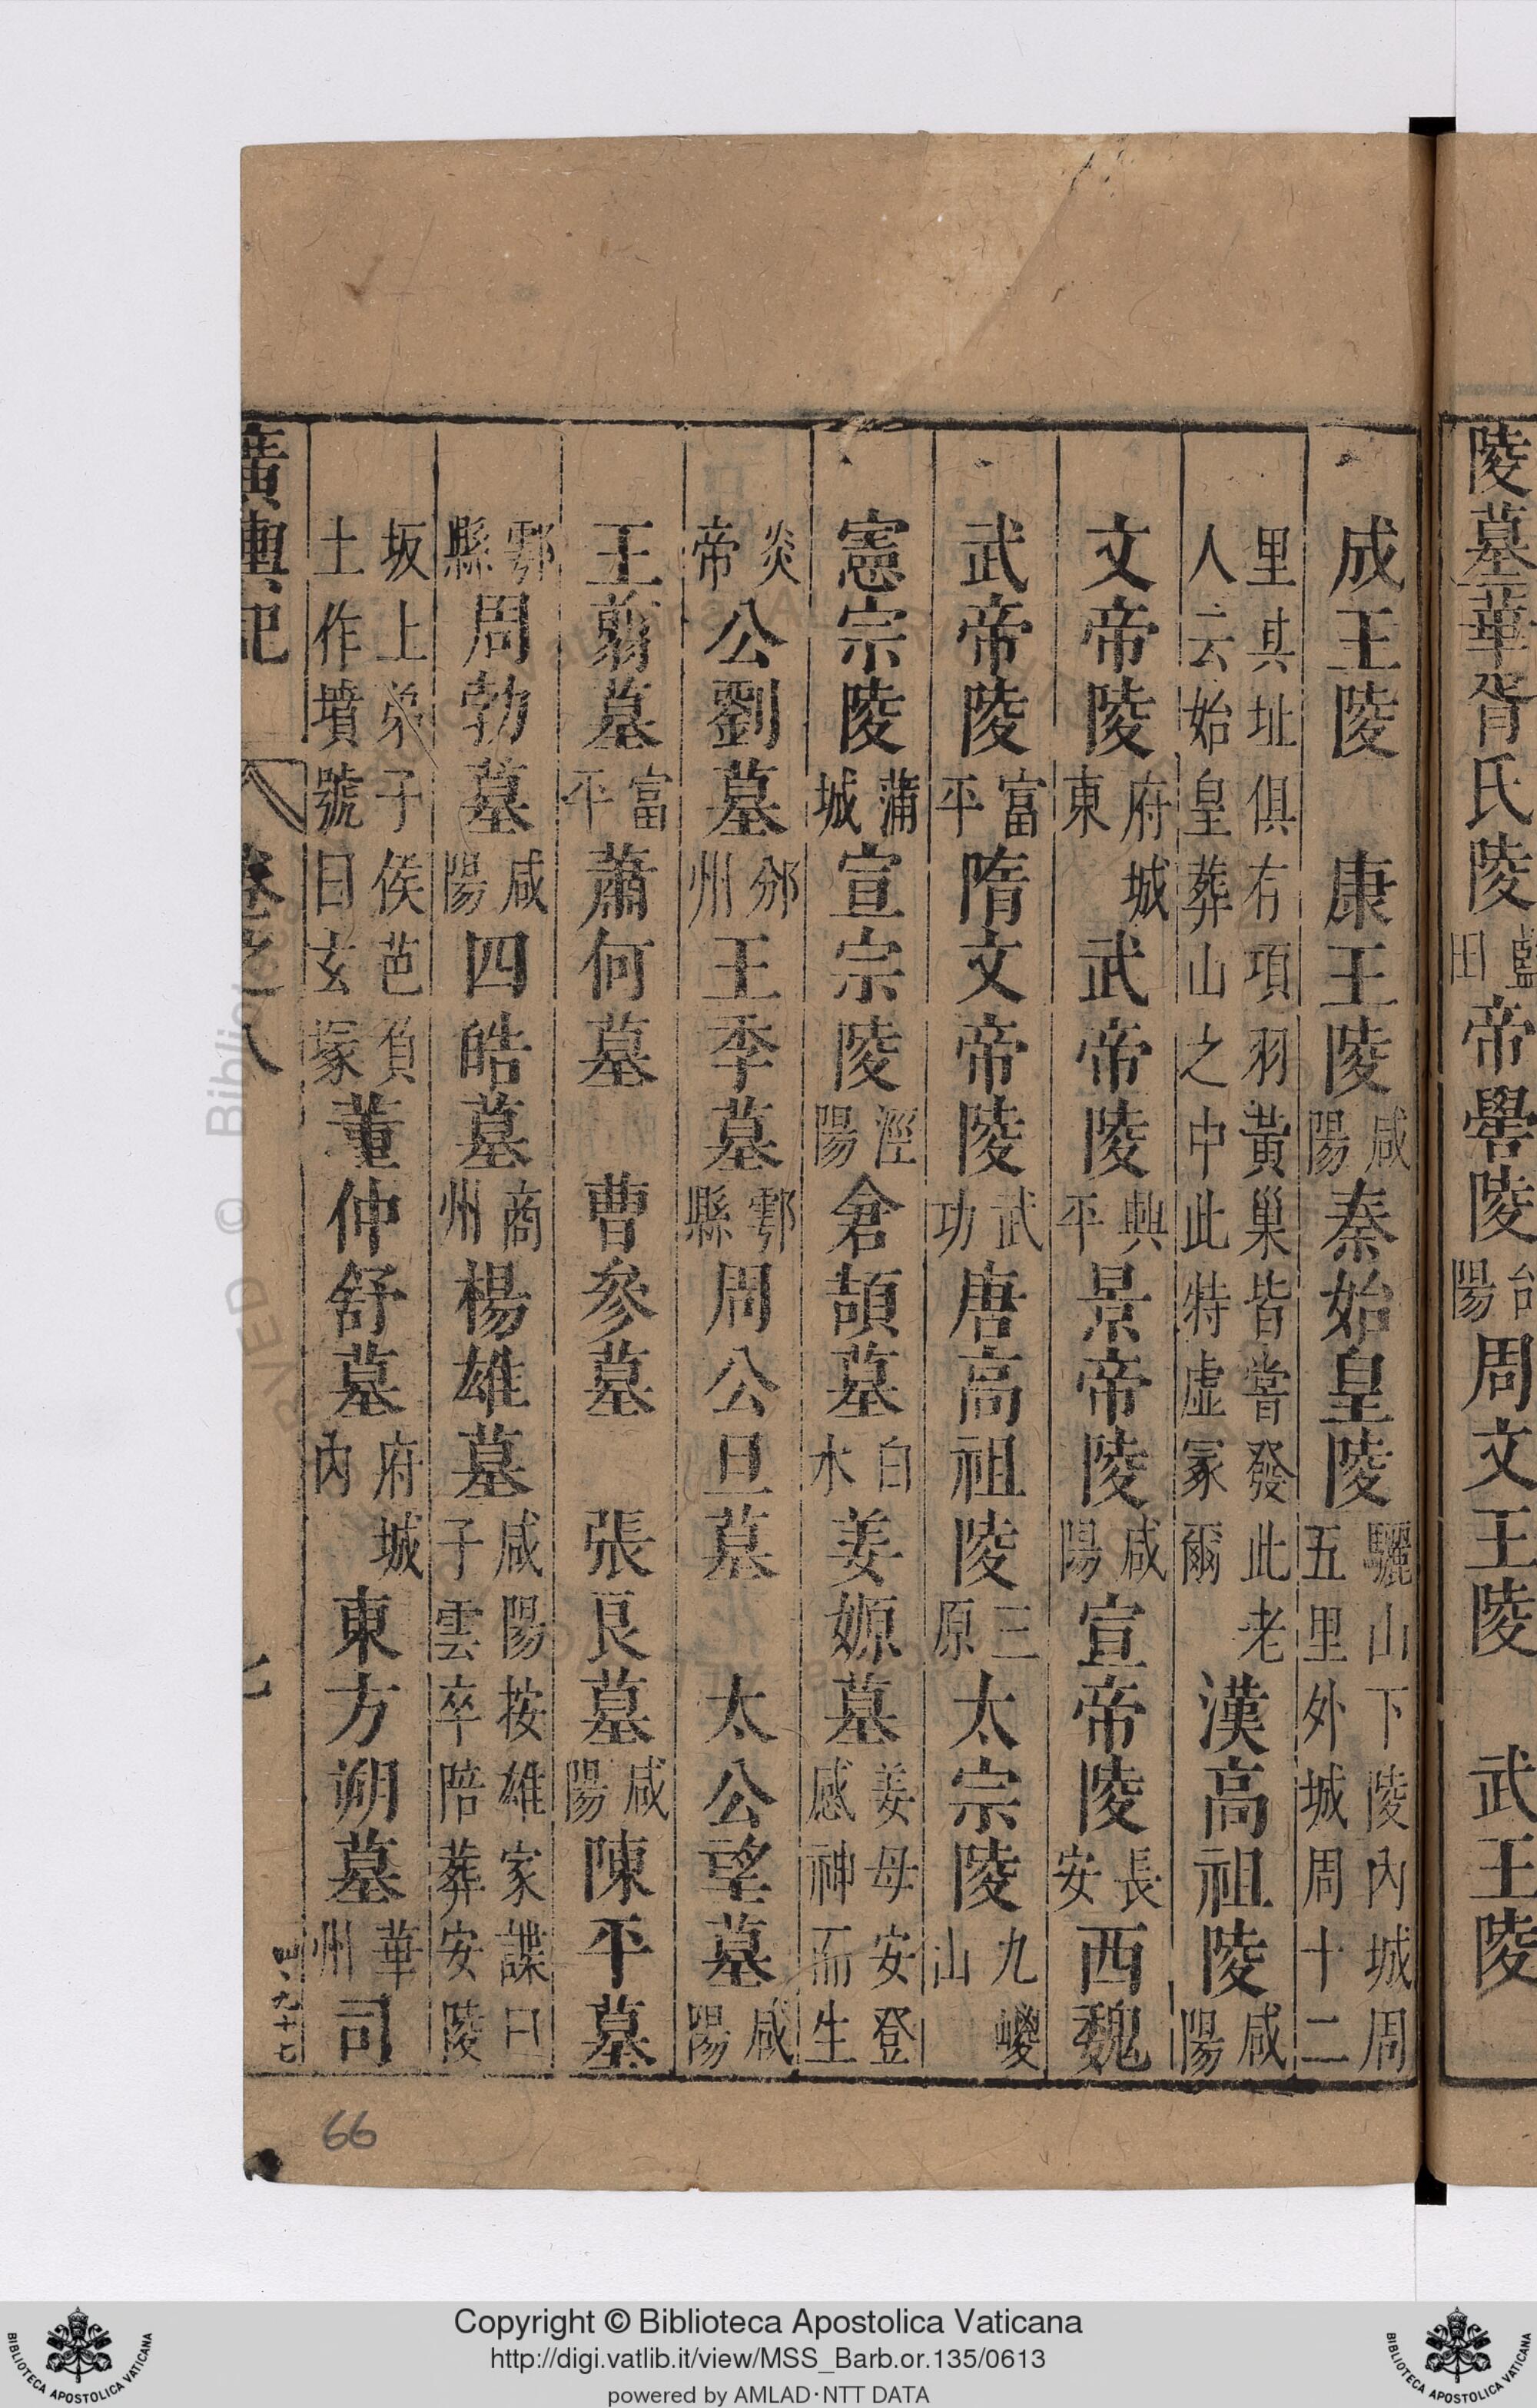 陵墓華胥氏陵藍田帝嚳陵郃陽周文王陵 武王陵
成王陵 康王陵咸陽秦始皇陵驪山下陵內城周五里外城周十二
里其址俱有項羽黃巢皆嘗發此老人云始皇葬山之中此特虛冢爾漢高祖陵咸陽
文帝陵府城東武帝陵興平景帝陵咸陽宣帝陵長安西魏
武帝陵富平隋文帝陵武功唐高祖陵三原太宗陵九嵕山
憲宗陵蒲城宣宗陵涇陽倉頡墓白水姜嫄墓姜母安登感神而生
炎帝公劉墓邠州王季墓鄠縣周公旦墓 太公望墓咸陽
王翦墓富平蕭何墓 曹參墓 張良墓咸陽陳平墓
鄠縣周勃墓咸陽四皓墓商州楊雄墓咸陽按雄家諜曰子雲卒陪葬安陵
坂上弟子侯芭負土作墳號曰玄塚董仲舒墓府城內東方朔墓華州司
廣輿記 卷之八 七
九十七
66
Copyright © Biblioteca Apostolica Vaticana
http://digi.vatlib.it/view/MSS_Barb.or.135/0613
powered by AMLAD·NTT DATA
BIBLIOTECA APOSTOLICA VATICANA
BIBLIOTECA APOSTOLICA VATICANA